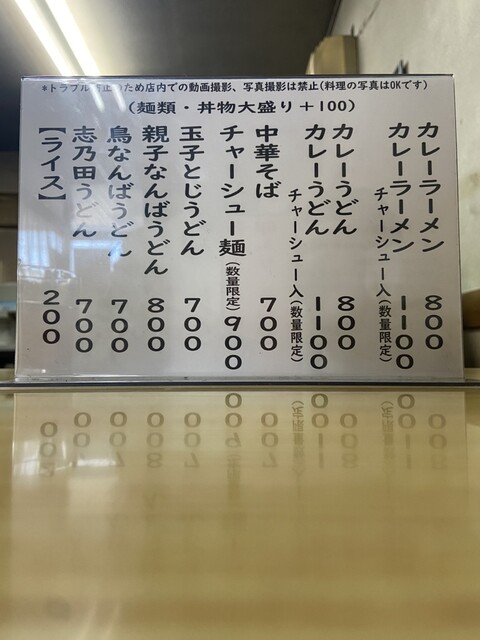 *トラブル防止のため店内での動画撮影、写真撮影は禁止(料理の写真はOKです)
(麺類・丼物大盛り＋100)
カレーラーメン 800
カレーラーメン
チャーシュー入(数量限定) 1100
カレーうどん 800
カレーうどん
チャーシュー入(数量限定) 1100
中華そば 700
チャーシュー麺(数量限定) 900
玉子とじうどん 700
親子なんばうどん 800
鳥なんばうどん 700
志乃田うどん 700
【ライス】 200